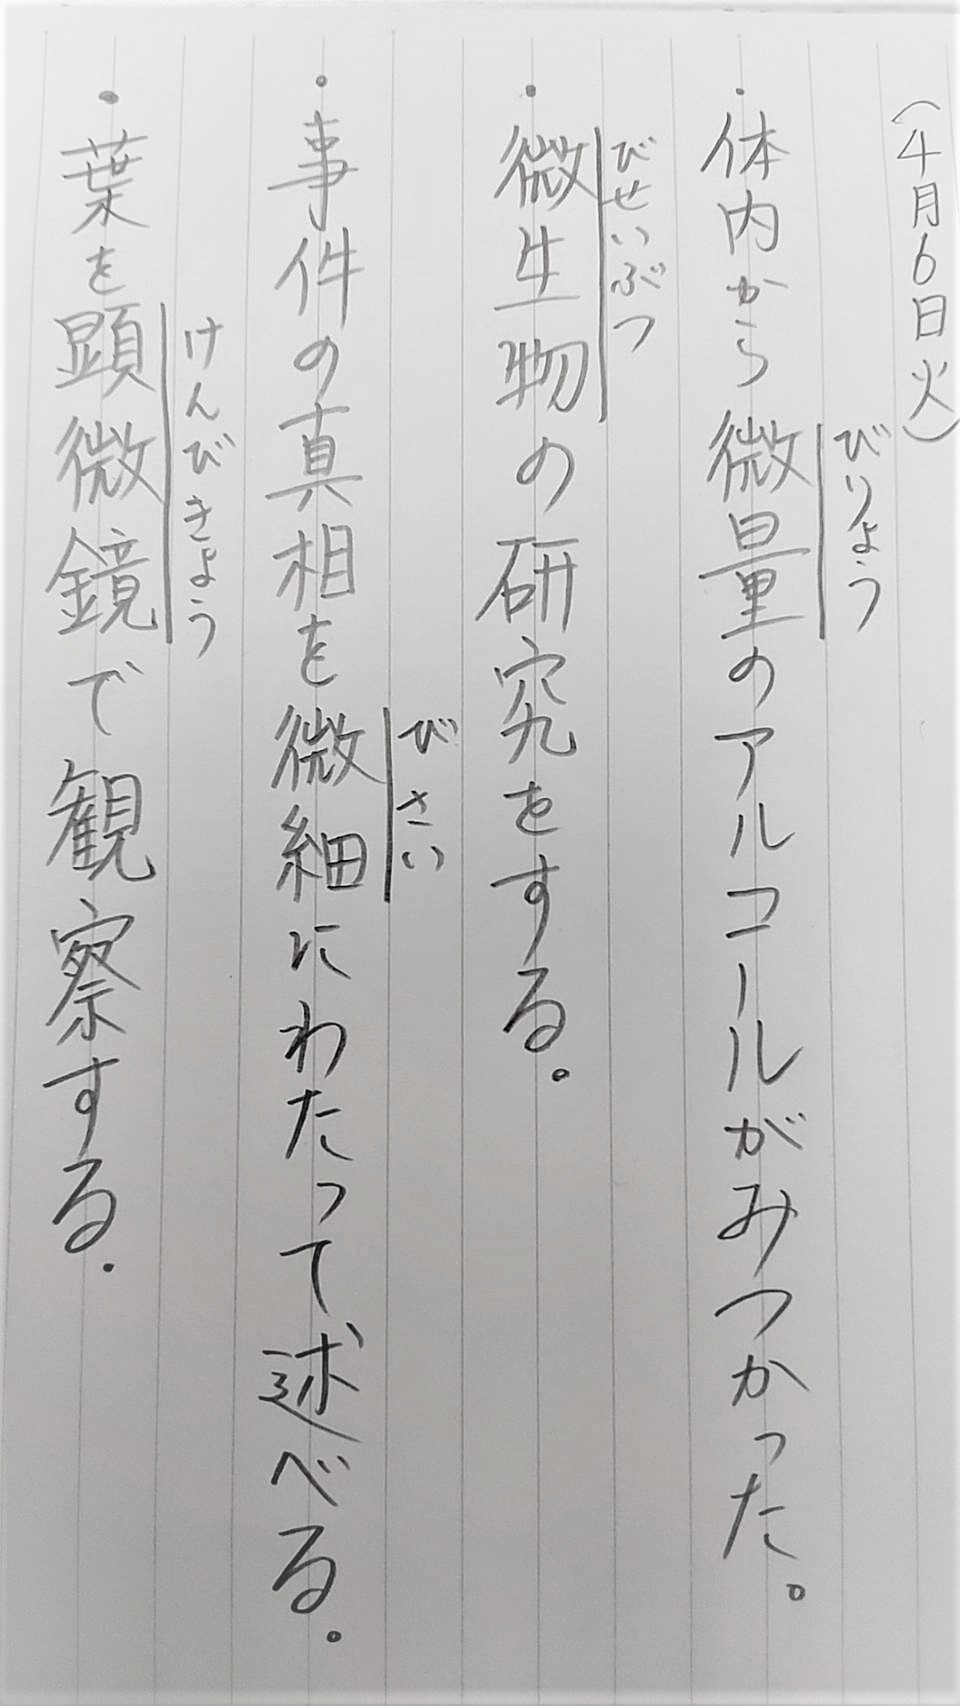 （4月6日火）
びりょう
・体内から微量のアルコールがみつかった。
びせいぶつ
・微生物の研究をする。
びさい
・事件の真相を微細にわたって述べる。
けんびきょう
・葉を顕微鏡で観察する。